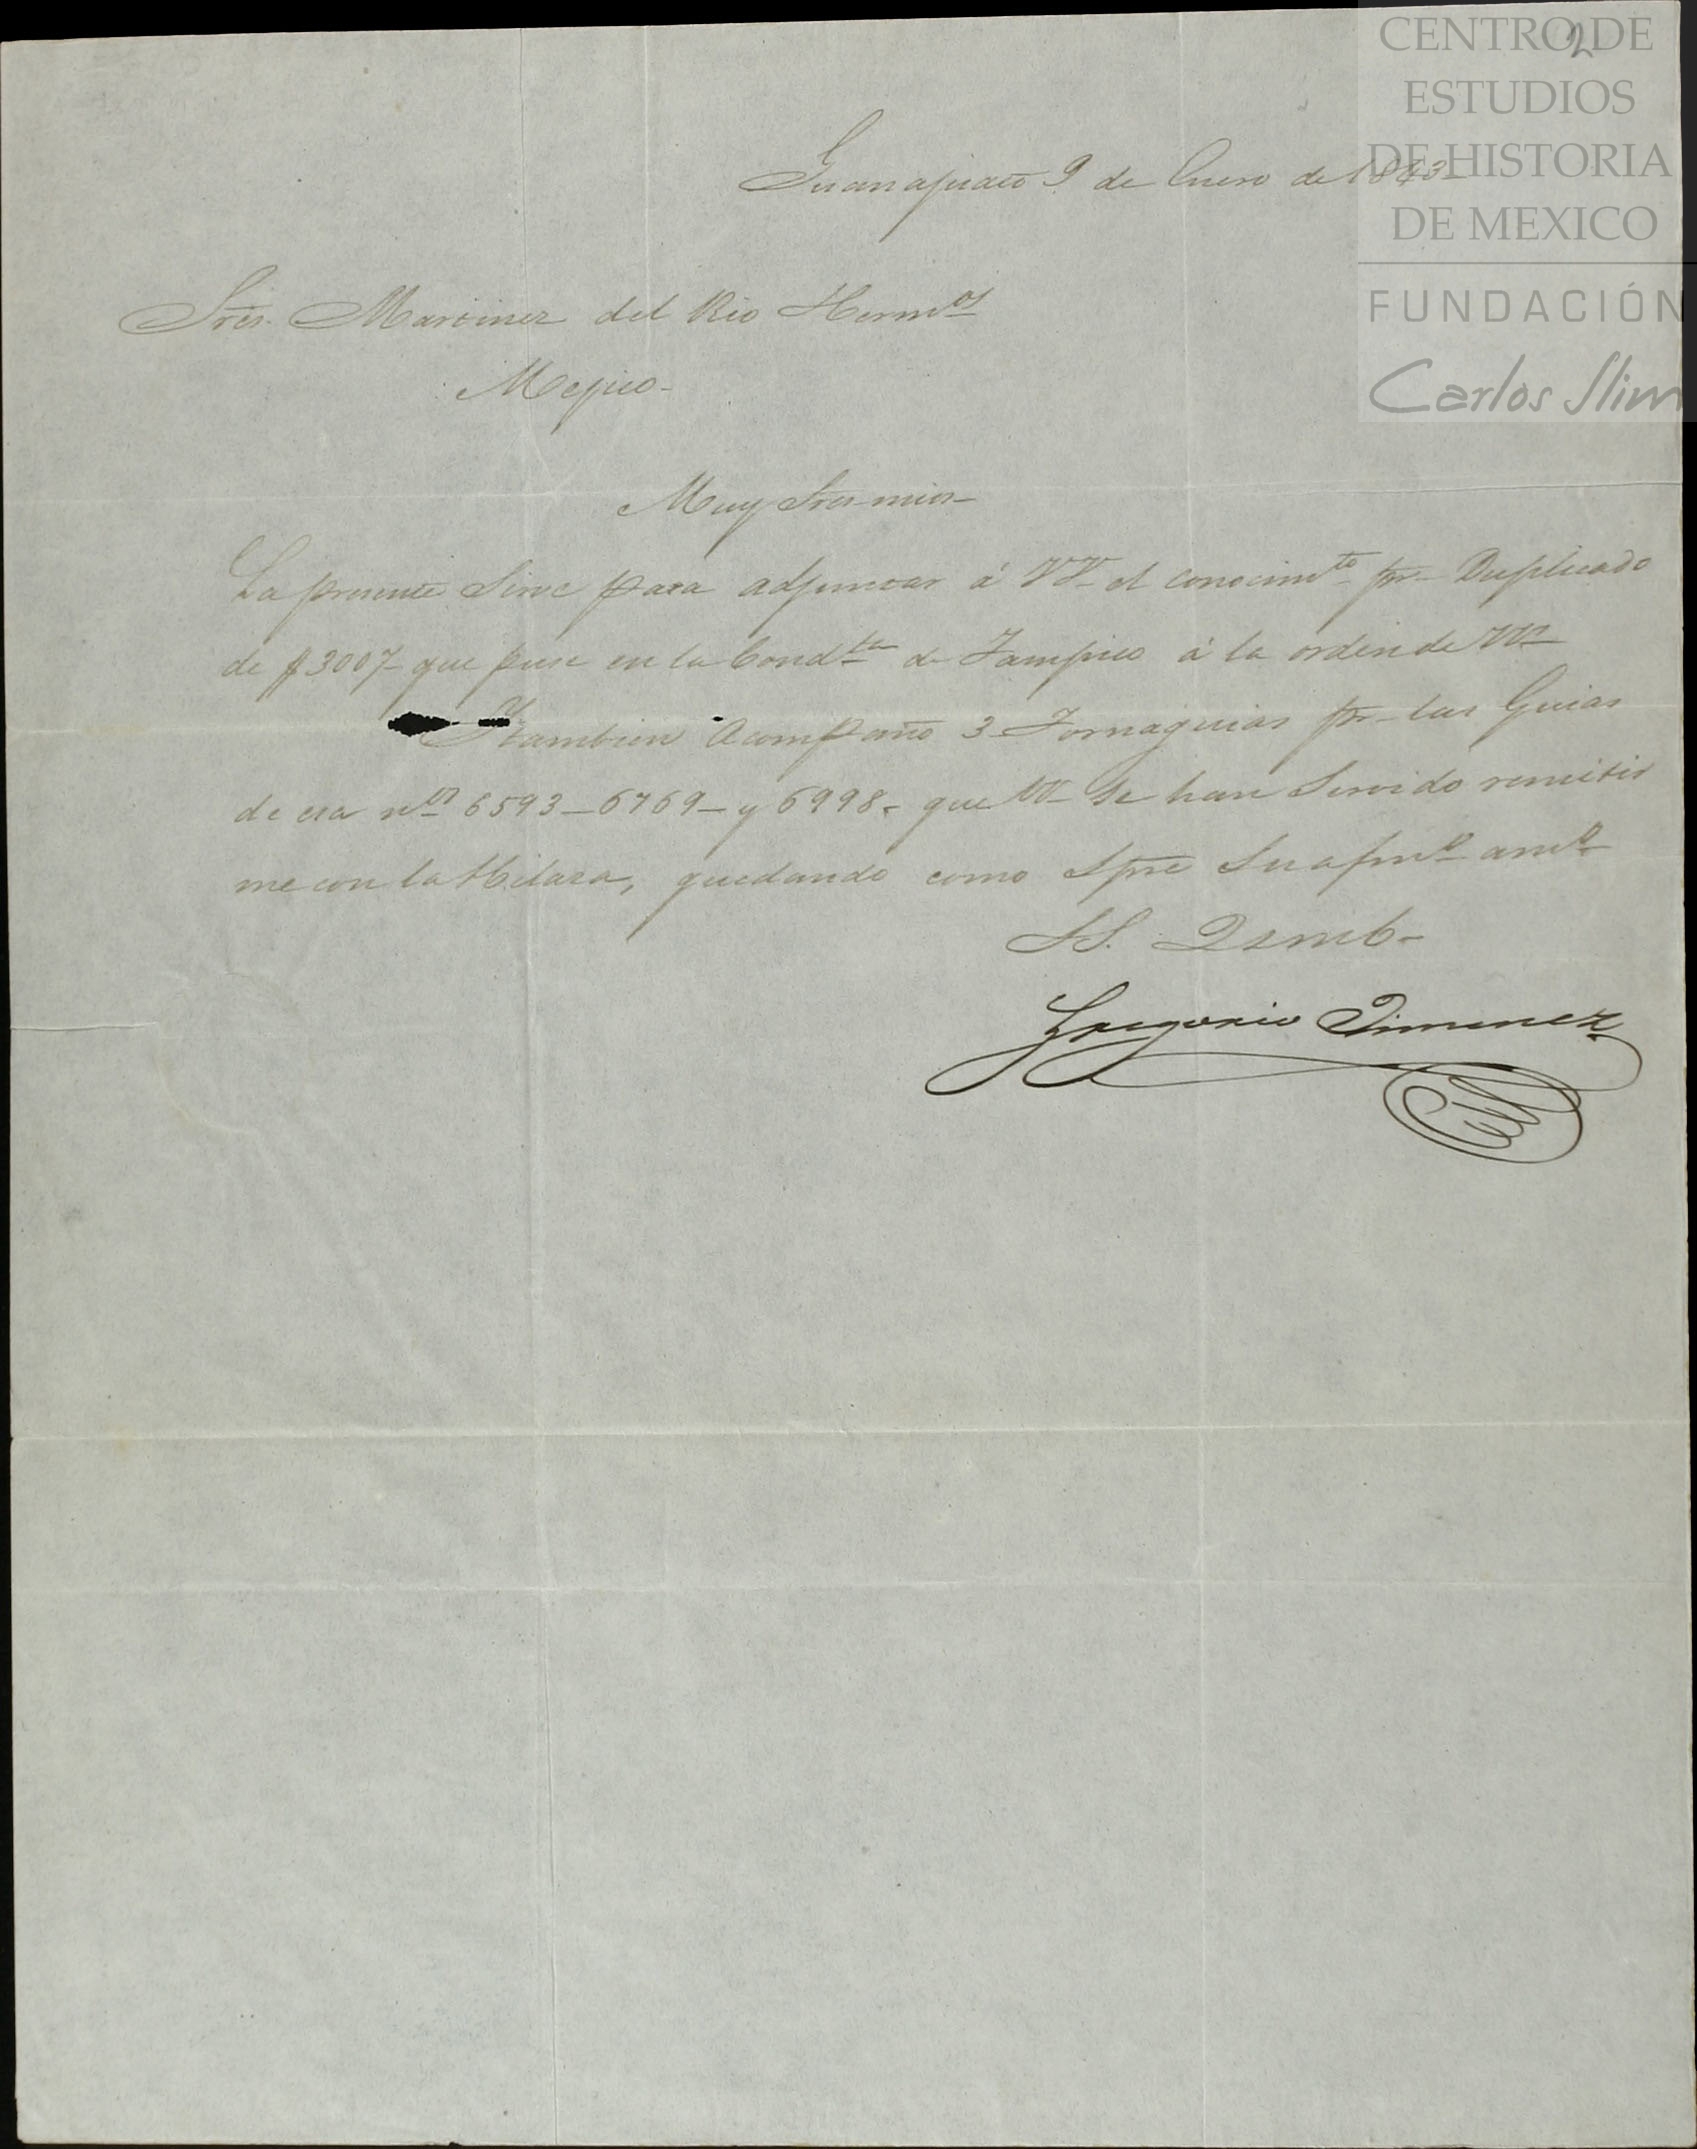 CENTRO DE
ESTUDIOS
DE HISTORIA
DE MEXICO
FUNDACIÓN
Carlos Slim
2
Guanajuato 9 de Enero de 1843
Sres. Martinez del Rio Hermos
Mejico-
Muy Sres mios-
La presente Sirve para adjuntar á VV el conocimto pr Duplicado
de $3007- que puse en la Condta de Tampico á la orden de VV
Y tambien acompaño 3 Tornaguias pr las Guias
de esa nos 6593-6769- y 6998- que VV se han Servido remitir
me con la Hilaza, quedando como Spre Su afmo amo
SS. Qsmb-
Gregorio Jimenez